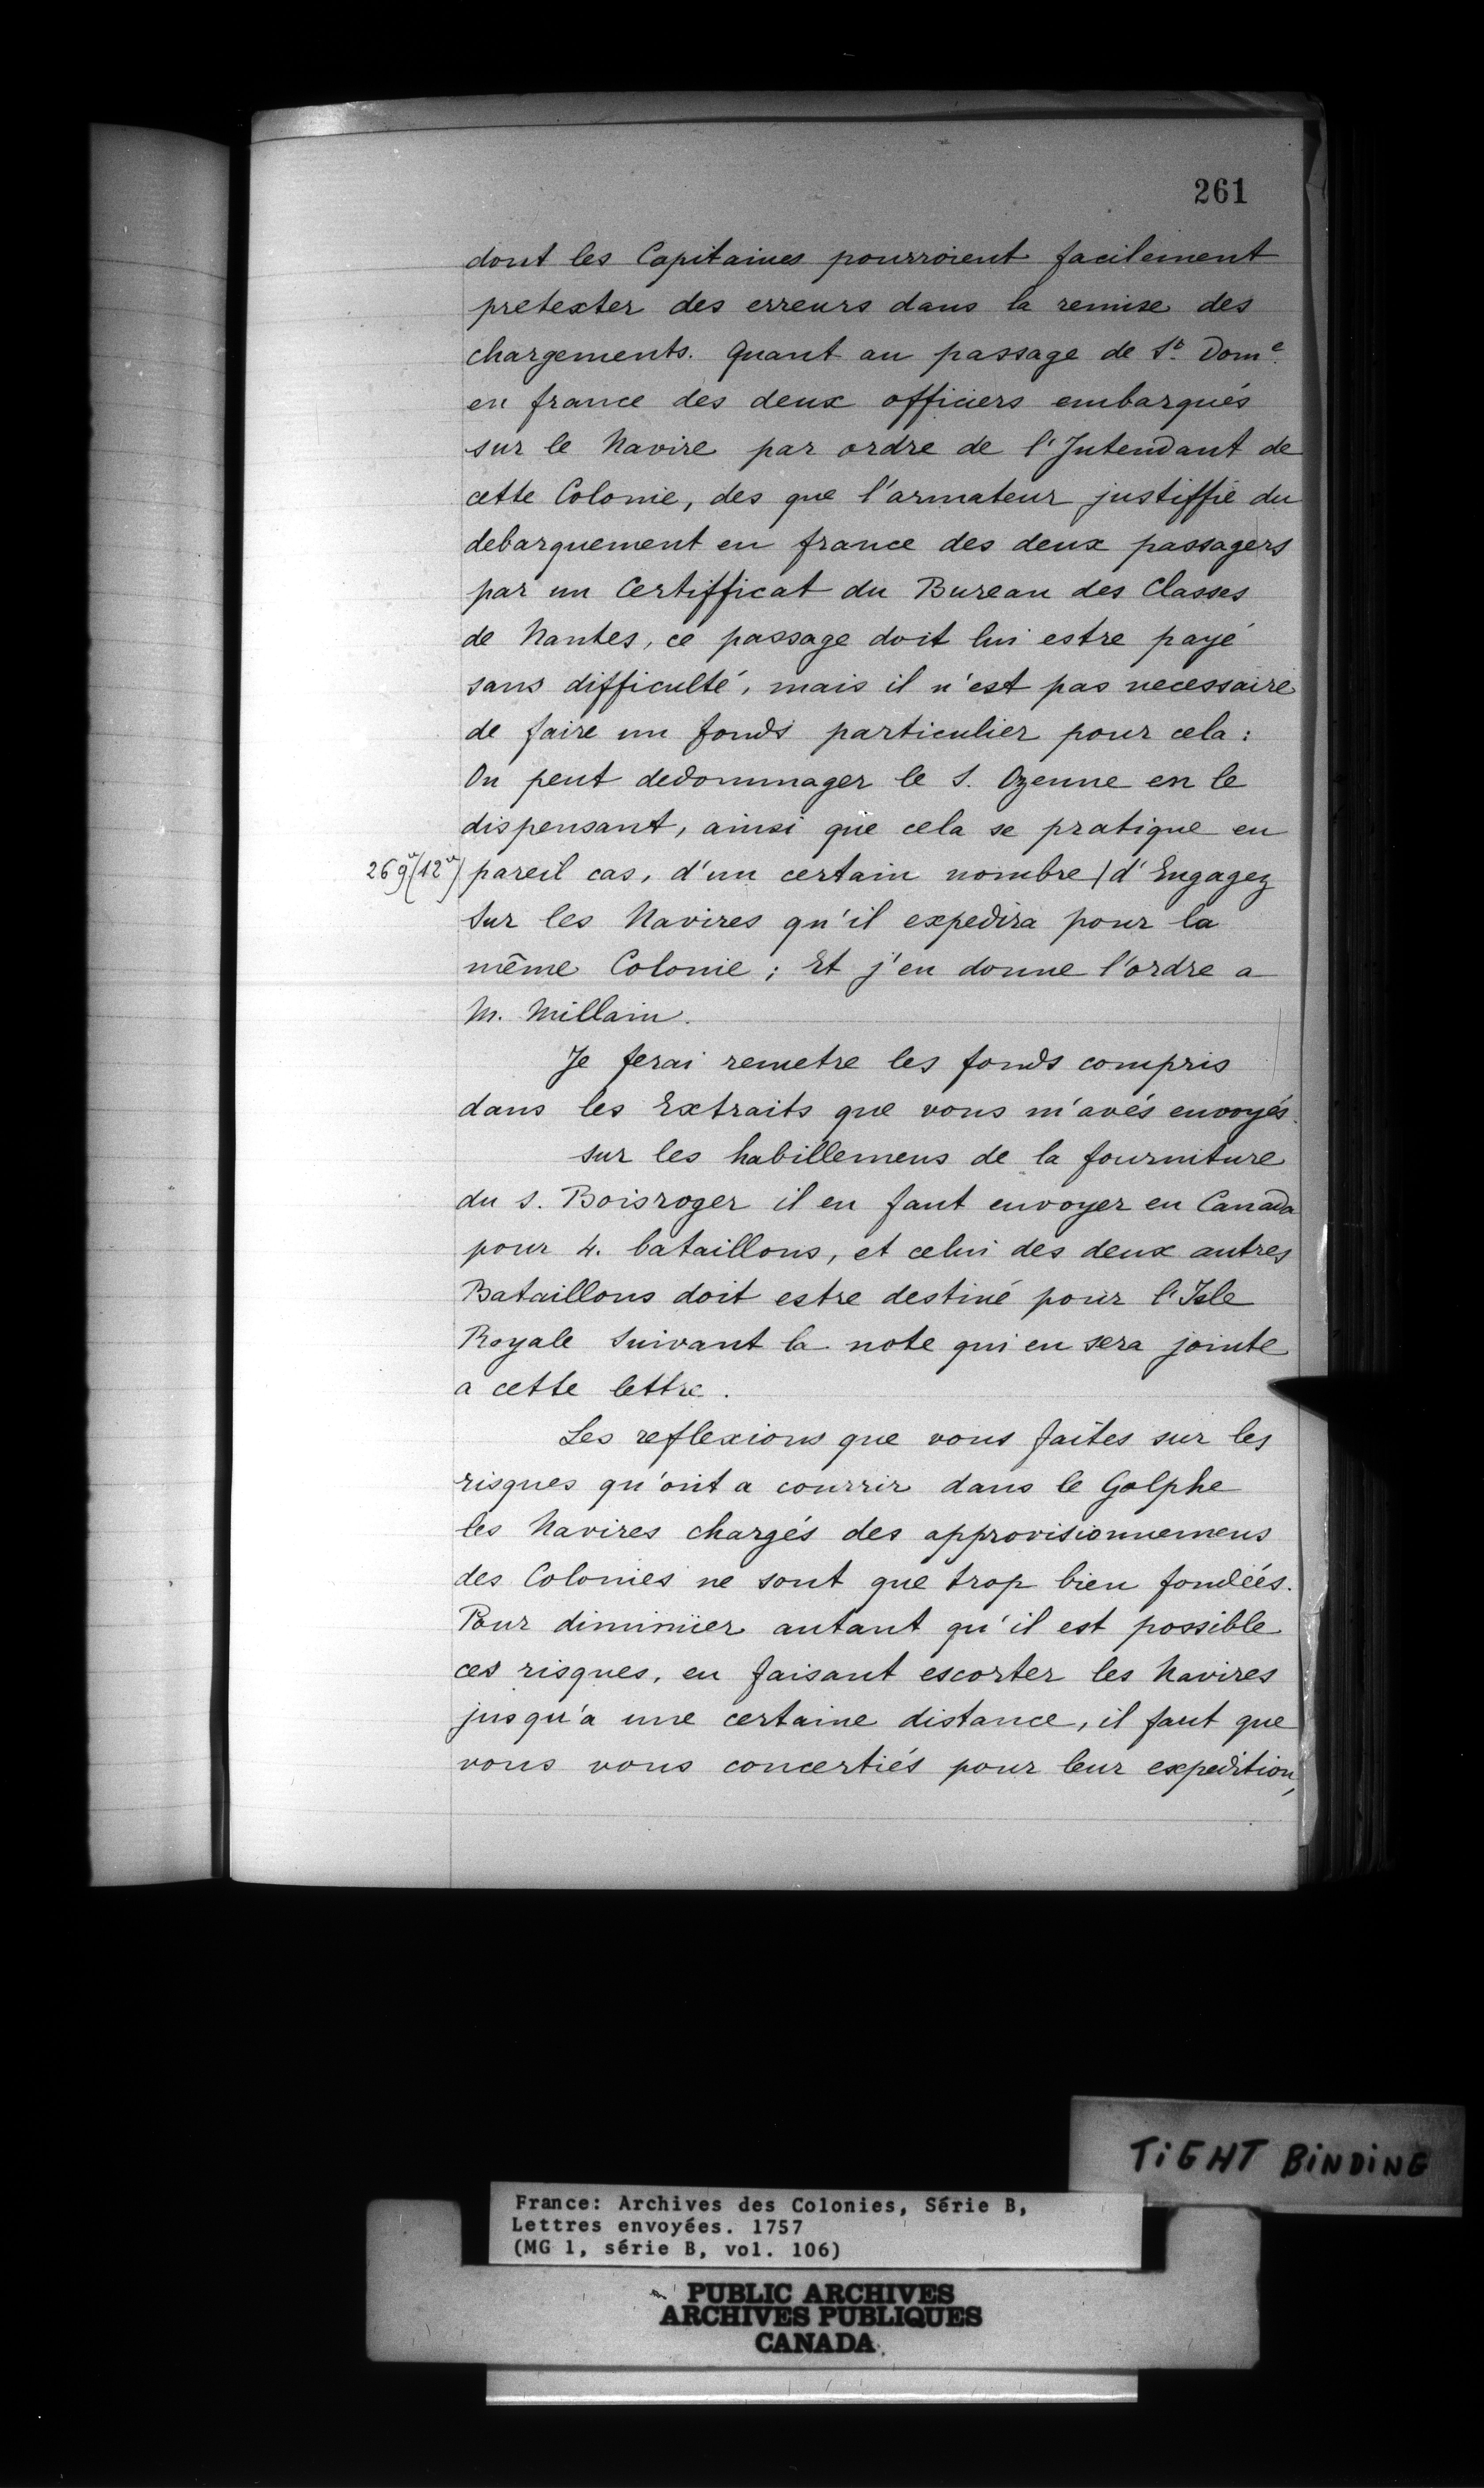 261
dont les Capitaines pourroient facilement
pretexter des erreurs dans la remise des
chargements. Quant au passage de St. Dome.
en france des deux officiers embarqués
sur le Navire par ordre de l'Intendant de
cette Colonie, des que l'armateur justiffie du
debarquement en france des deux passagers
par un Certifficat du Bureau des Classes
de Nantes, ce passage doit lui estre payé
sans difficulté, mais il n'est pas necessaire
de faire un fonds particulier pour cela:
On peut dedommager le S. Ozenne en le
dispensant, ainsi que cela se pratique en
pareil cas, d'un certain nombre / d'Engagez
sur les Navires qu'il expedira pour la
même Colonie; Et j'en donne l'ordre a
M. Millain.
Je ferai remetre les fonds compris
dans les Extraits que vous m'avés envoyés.
sur les habillemens de la fourniture
du s. Boisroger il en faut envoyer en Canada
pour 4. bataillons, et celui des deux autres
Bataillons doit estre destiné pour l'Isle
Royale suivant la note qui en sera jointe
a cette lettre.
Les reflexions que vous faites sur les
risques qu'ont a courrir dans le Golphe
les Navires chargés des approvisionnemens
des Colonies ne sont que trop bien fondées.
Pour diminüer autant qu'il est possible
ces risques, en faisant escorter les Navires
jusqu'a une certaine distance, il faut que
vous vous concertiés pour leur expedition,
TIGHT BINDING
France: Archives des Colonies, Série B,
Lettres envoyées. 1757
(MG 1, série B, vol. 106)
PUBLIC ARCHIVES
ARCHIVES PUBLIQUES
CANADA